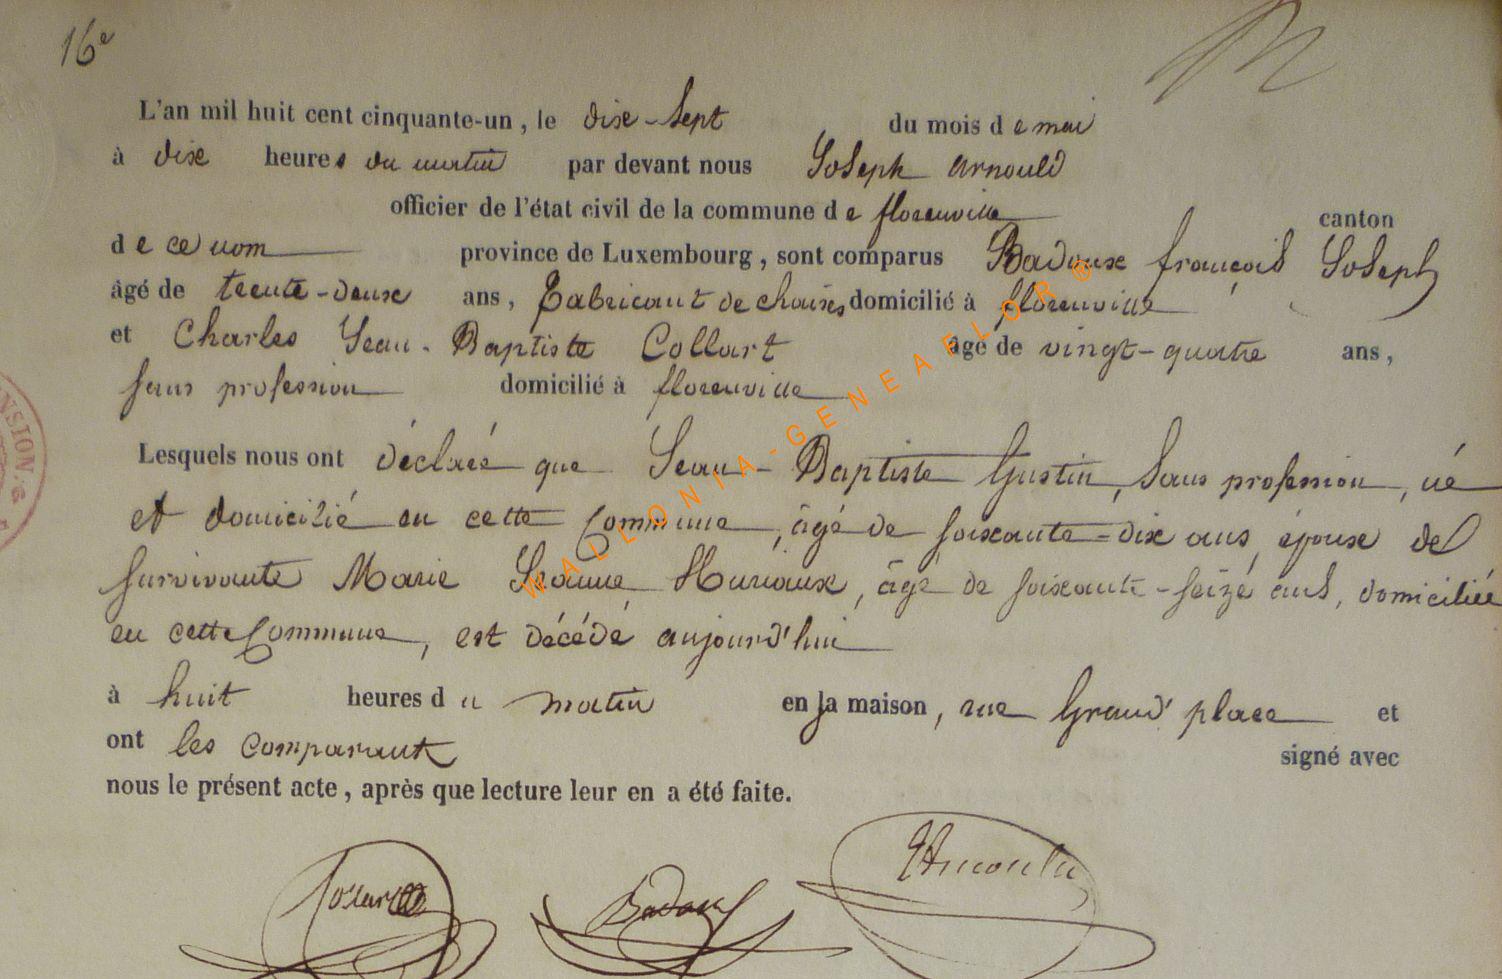 16e
L'an mil huit cent cinquante-un, le dix-sept du mois de mai
à dix heures du matin par devant nous Joseph Arnould
officier de l'état civil de la commune de florenville canton
de ce nom province de Luxembourg, sont comparus Badoux françois Joseph
âgé de trente-deux ans, fabricant de chaises domicilié à florenville
et Charles Jean-Baptiste Collart âgé de vingt-quatre ans,
sans profession domicilié à florenville
Lesquels nous ont déclaré que Jean-Baptiste Gustin, sans profession, né
et domicilié en cette Commune, âgé de soixante-dix ans, époux de
survivante Marie Jeanne Huriaux, âgé de soixante-seize ans, domiciliée
en cette Commune, est décédé aujourd'hui
à huit heures du matin en la maison, rue Grand' place et
ont les comparants signé avec
nous le présent acte, après que lecture leur en a été faite.
Collart Badoux JArnould
WALLONIA-GENEAFLOR®
NSION.